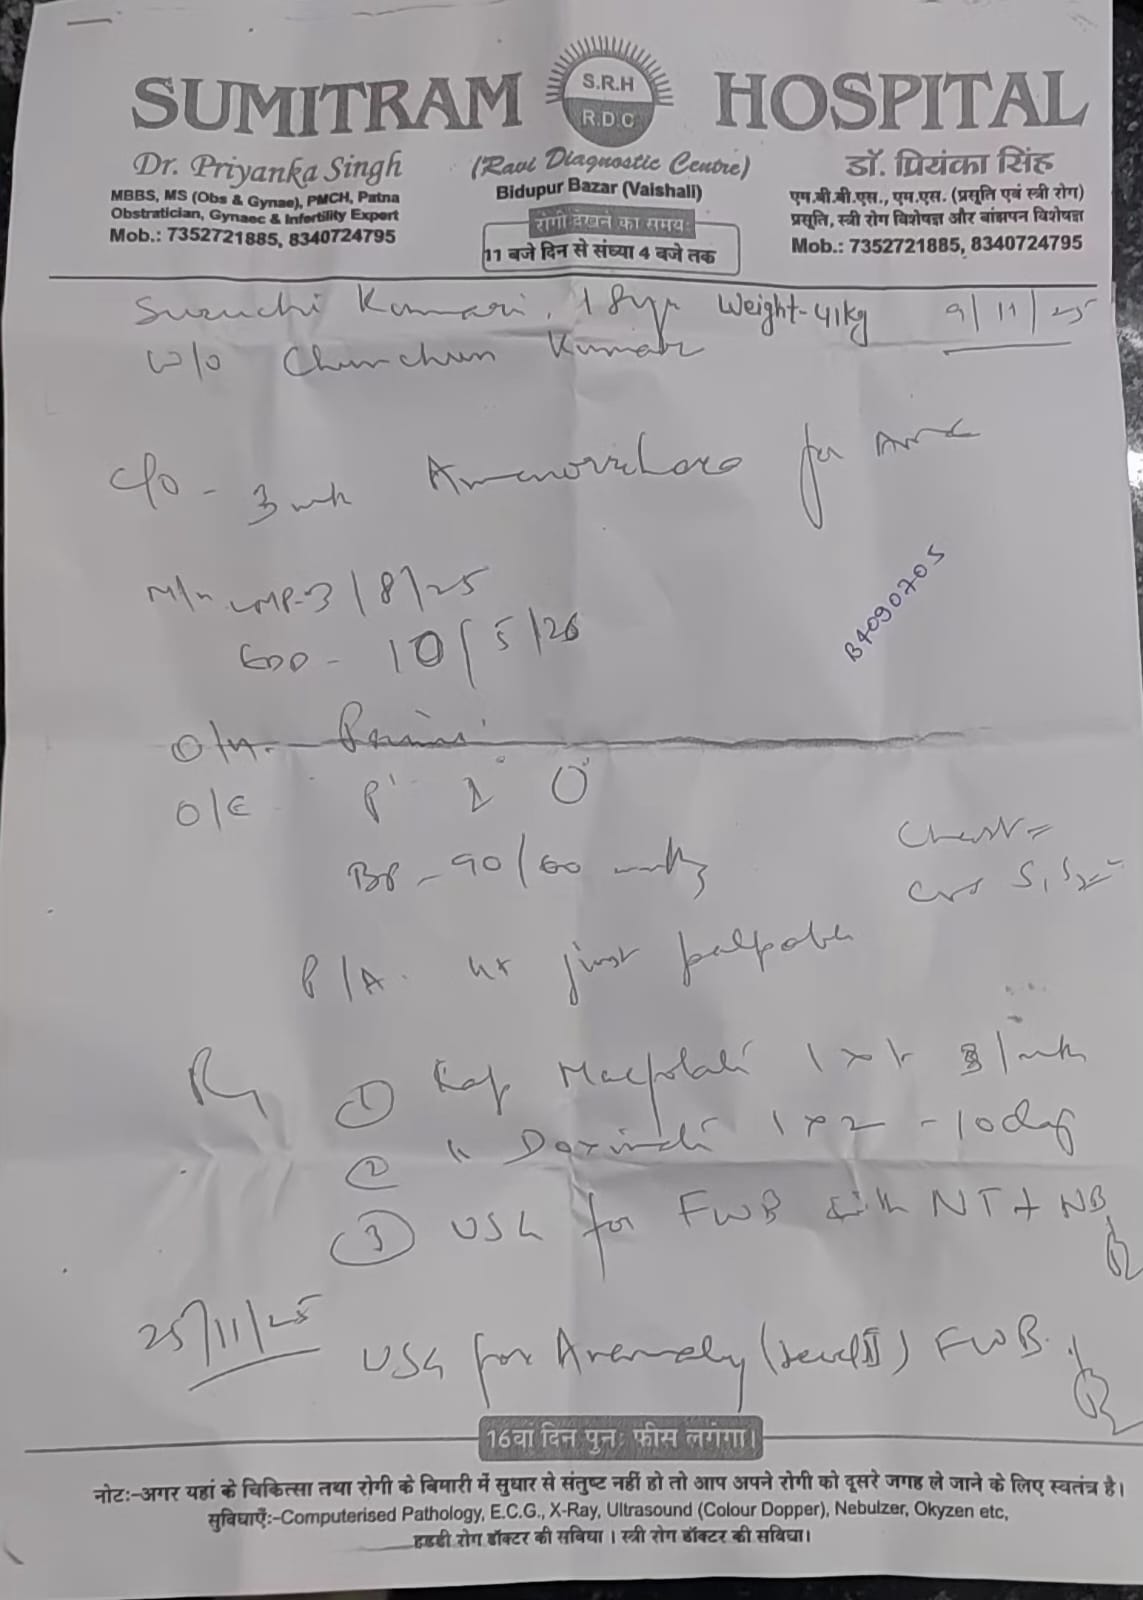 SUMITRAM HOSPITAL
S.R.H
R.D.C
Dr. Priyanka Singh
MBBS, MS (Obs & Gynae), PMCH, Patna
Obstratician, Gynaec & Infertility Expert
Mob.: 7352721885, 8340724795
(Ravi Diagnostic Centre)
Bidupur Bazar (Vaishali)
रोगी देखने का समय
11 बजे दिन से संध्या 4 बजे तक
डॉ. प्रियंका सिंह
एम.बी.बी.एस., एम.एस. (प्रसूति एवं स्त्री रोग)
प्रसूति, स्त्री रोग विशेषज्ञ और बांझपन विशेषज्ञ
Mob.: 7352721885, 8340724795
Suruchi Kumari, 18yr Weight-41kg 9/11/25
w/o Chunchun Kumar
C/o - 3 for
LMP-3/8/25
EDD - 10/5/26
B4090705
O/H - Primi
O/E
BP - 90/60 mmHg
Chest
CVS S1S2
P/A. ut just palpable
Rx
① 1 x 1
② " 1 x 2 - 10 days
③ USG for FWB with NT + NB
25/11/25
USG for Anomaly (level II) FWB.
16वां दिन पुनः फीस लगेगा।
नोटः-अगर यहां के चिकित्सा तथा रोगी के बिमारी में सुधार से संतुष्ट नहीं हो तो आप अपने रोगी को दूसरे जगह ले जाने के लिए स्वतंत्र है।
सुविधाएँः-Computerised Pathology, E.C.G., X-Ray, Ultrasound (Colour Dopper), Nebulzer, Okyzen etc,
हडडी रोग डॉक्टर की सविधा । स्त्री रोग डॉक्टर की सविधा।